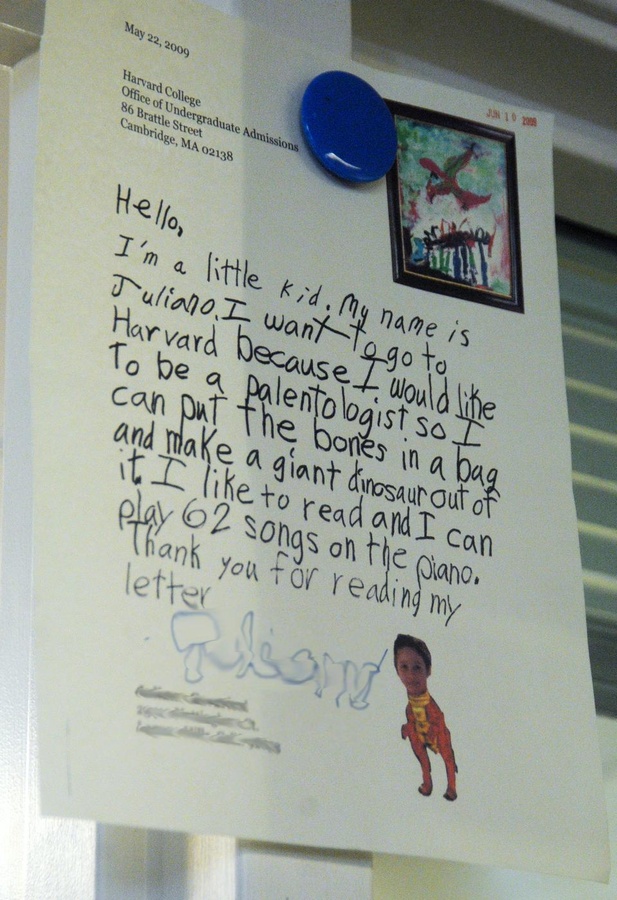 May 22, 2009
JUN 10
Harvard College
Office of Undergraduate Admissions
86 Brattle Street
Cambridge, MA 02138
Hello,
I'm a little kid. My name is
Juliano. I want to go to
Harvard because I would like
To be a palentologist so I
can put the bones in a bag
and make a giant dinosaur out of
it. I like to read and I can
play 62 songs on the piano.
Thank you for reading my
letter